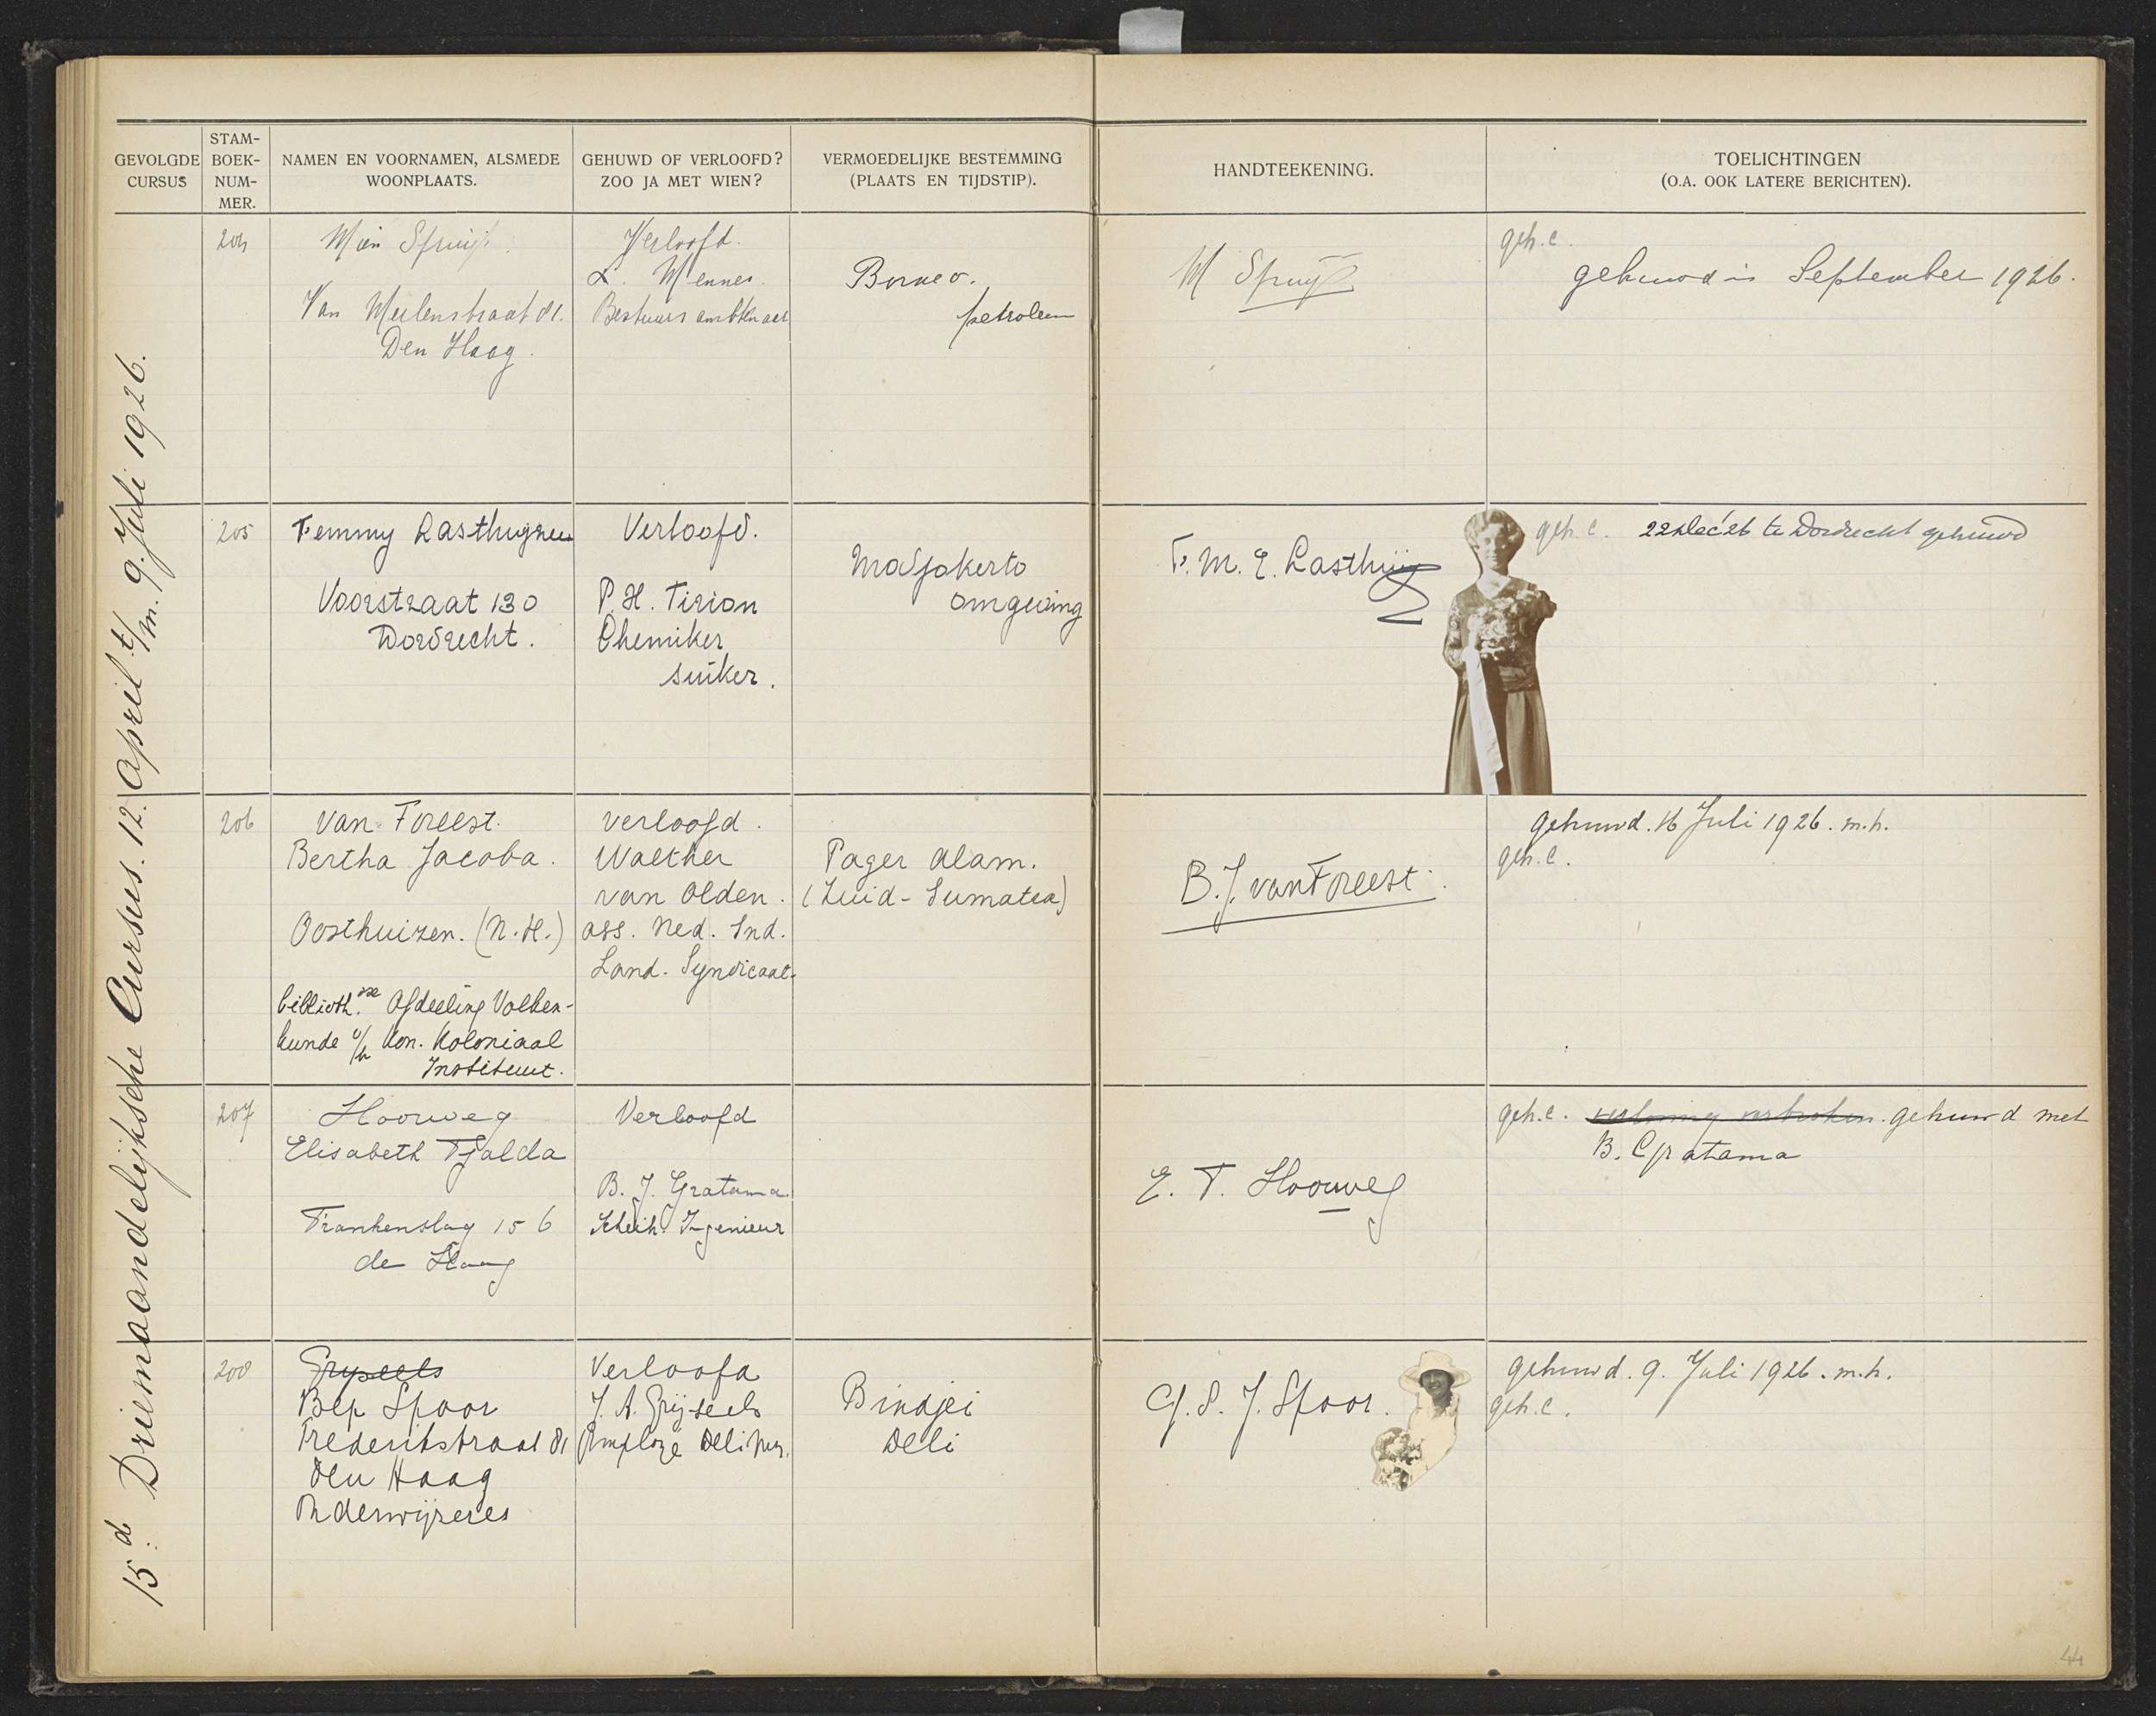 GEVOLGDE CURSUS
STAM-BOEK-NUM-MER.
NAMEN EN VOORNAMEN, ALSMEDE WOONPLAATS.
GEHUWD OF VERLOOFD? ZOO JA MET WIEN?
VERMOEDELIJKE BESTEMMING (PLAATS EN TIJDSTIP).
HANDTEEKENING.
TOELICHTINGEN (O.A. OOK LATERE BERICHTEN).
15d. Driemaandelijksche Cursus. 12. April t/m. 9. Juli 1926.
204
Mien Spruijt.
Van Merlenstraat 81.
Den Haag.
Verloofd.
L. Mennes.
Bestuurs ambtenaar
Borneo.
petroleum
M Spruijt
geh. c.
gehuwd in September 1926.
205
Femmy Lasthuyzen
Voorstraat 130
Dordrecht.
Verloofd.
P. H. Tirion
Chemiker
suiker.
Modjokerto
omgeving
F. M. E. Lasthuij
geh. c. 22 Dec '26 te Dordrecht gehuwd
206
van Foreest.
Bertha Jacoba.
Oosthuizen. (N.H.)
biblioth.sse Afdeeling Volken-
kunde v/h Kon. Koloniaal
Instituut.
verloofd.
Walther
van Olden.
ass. Ned. Ind.
Land. Syndicaat.
Pager Alam.
(Zuid-Sumatra)
B. J. van Foreest.
gehuwd. 16 Juli 1926. m.h.
geh. c.
207
Hoorweg
Elisabeth Tjalda
Frankenslag 156
de Haag
Verloofd
B. J. Gratama
Scheik. Ingenieur
E. T. Hoorweg
geh. c. verloving verbroken. gehuwd met
B. Gratama
208
Grijseels
Bep Spoor
Frederikstraat 81
den Haag
Onderwijzeres
Verloofd
J. A. Grijseels
Employé Deli Mij.
Bindjei
Deli
G. S. J. Spoor.
gehuwd. 9. Juli 1926. m.h.
geh. c.
44